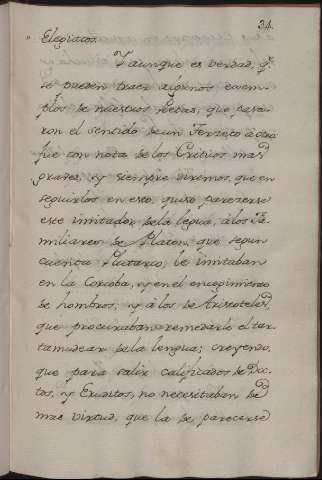 34.
Elegiacos.
Y aunque es verdad, q.
se pueden traer algunos exem-
plos de nuestros Poetas, que pasa-
ron el sentido de un Terzeto à otro
fue con nota de los Criticos mas
graves, y siempre diremos, que en
seguirlos en esto, quiso parecerse
este imitador de la legua, à los Fa-
miliares de Platon, que segun
cuenta Plutarco, le imitaban
en la Corcoba, y en el encogimiento
de hombros; y à los de Aristoteles,
que procuraban remedarle el tar-
tamudear de la lengua; creyendo,
que para salir calificados de Doc-
tos, y Eruditos, no necesitaban de
mas virtud, que la de parecerse